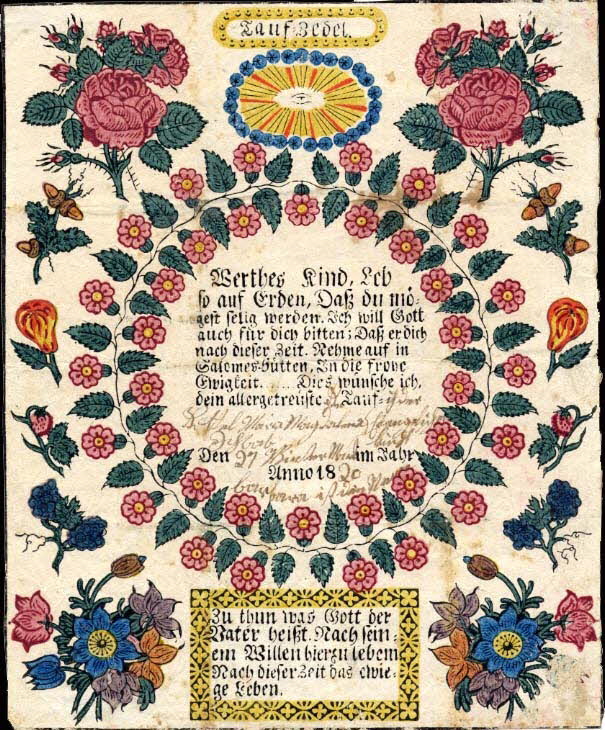 Tauf-Zedel.
Werthes Kind, Leb
so auf Erden, Daß du mö=
gest selig werden. Ich will Gott
auch für dich bitten; Daß er dich
nach dieser Zeit. Nehme auf in
Salomes-hütten, In die frohe
Ewigkeit...... Dies wünsche ich,
dein allergetreuste Tauf=
Maria Magdalena
Den 27 im Jahr
Anno 1820
barbara ist
Zu thun was Gott der
Vater heißt. Nach sein=
em Willen hier zu lebem
Nach dieser Zeit das ewi=
ge Leben.